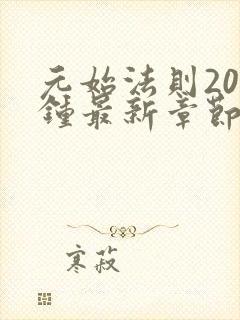 元始法則20
鍾最新章節
寒菽